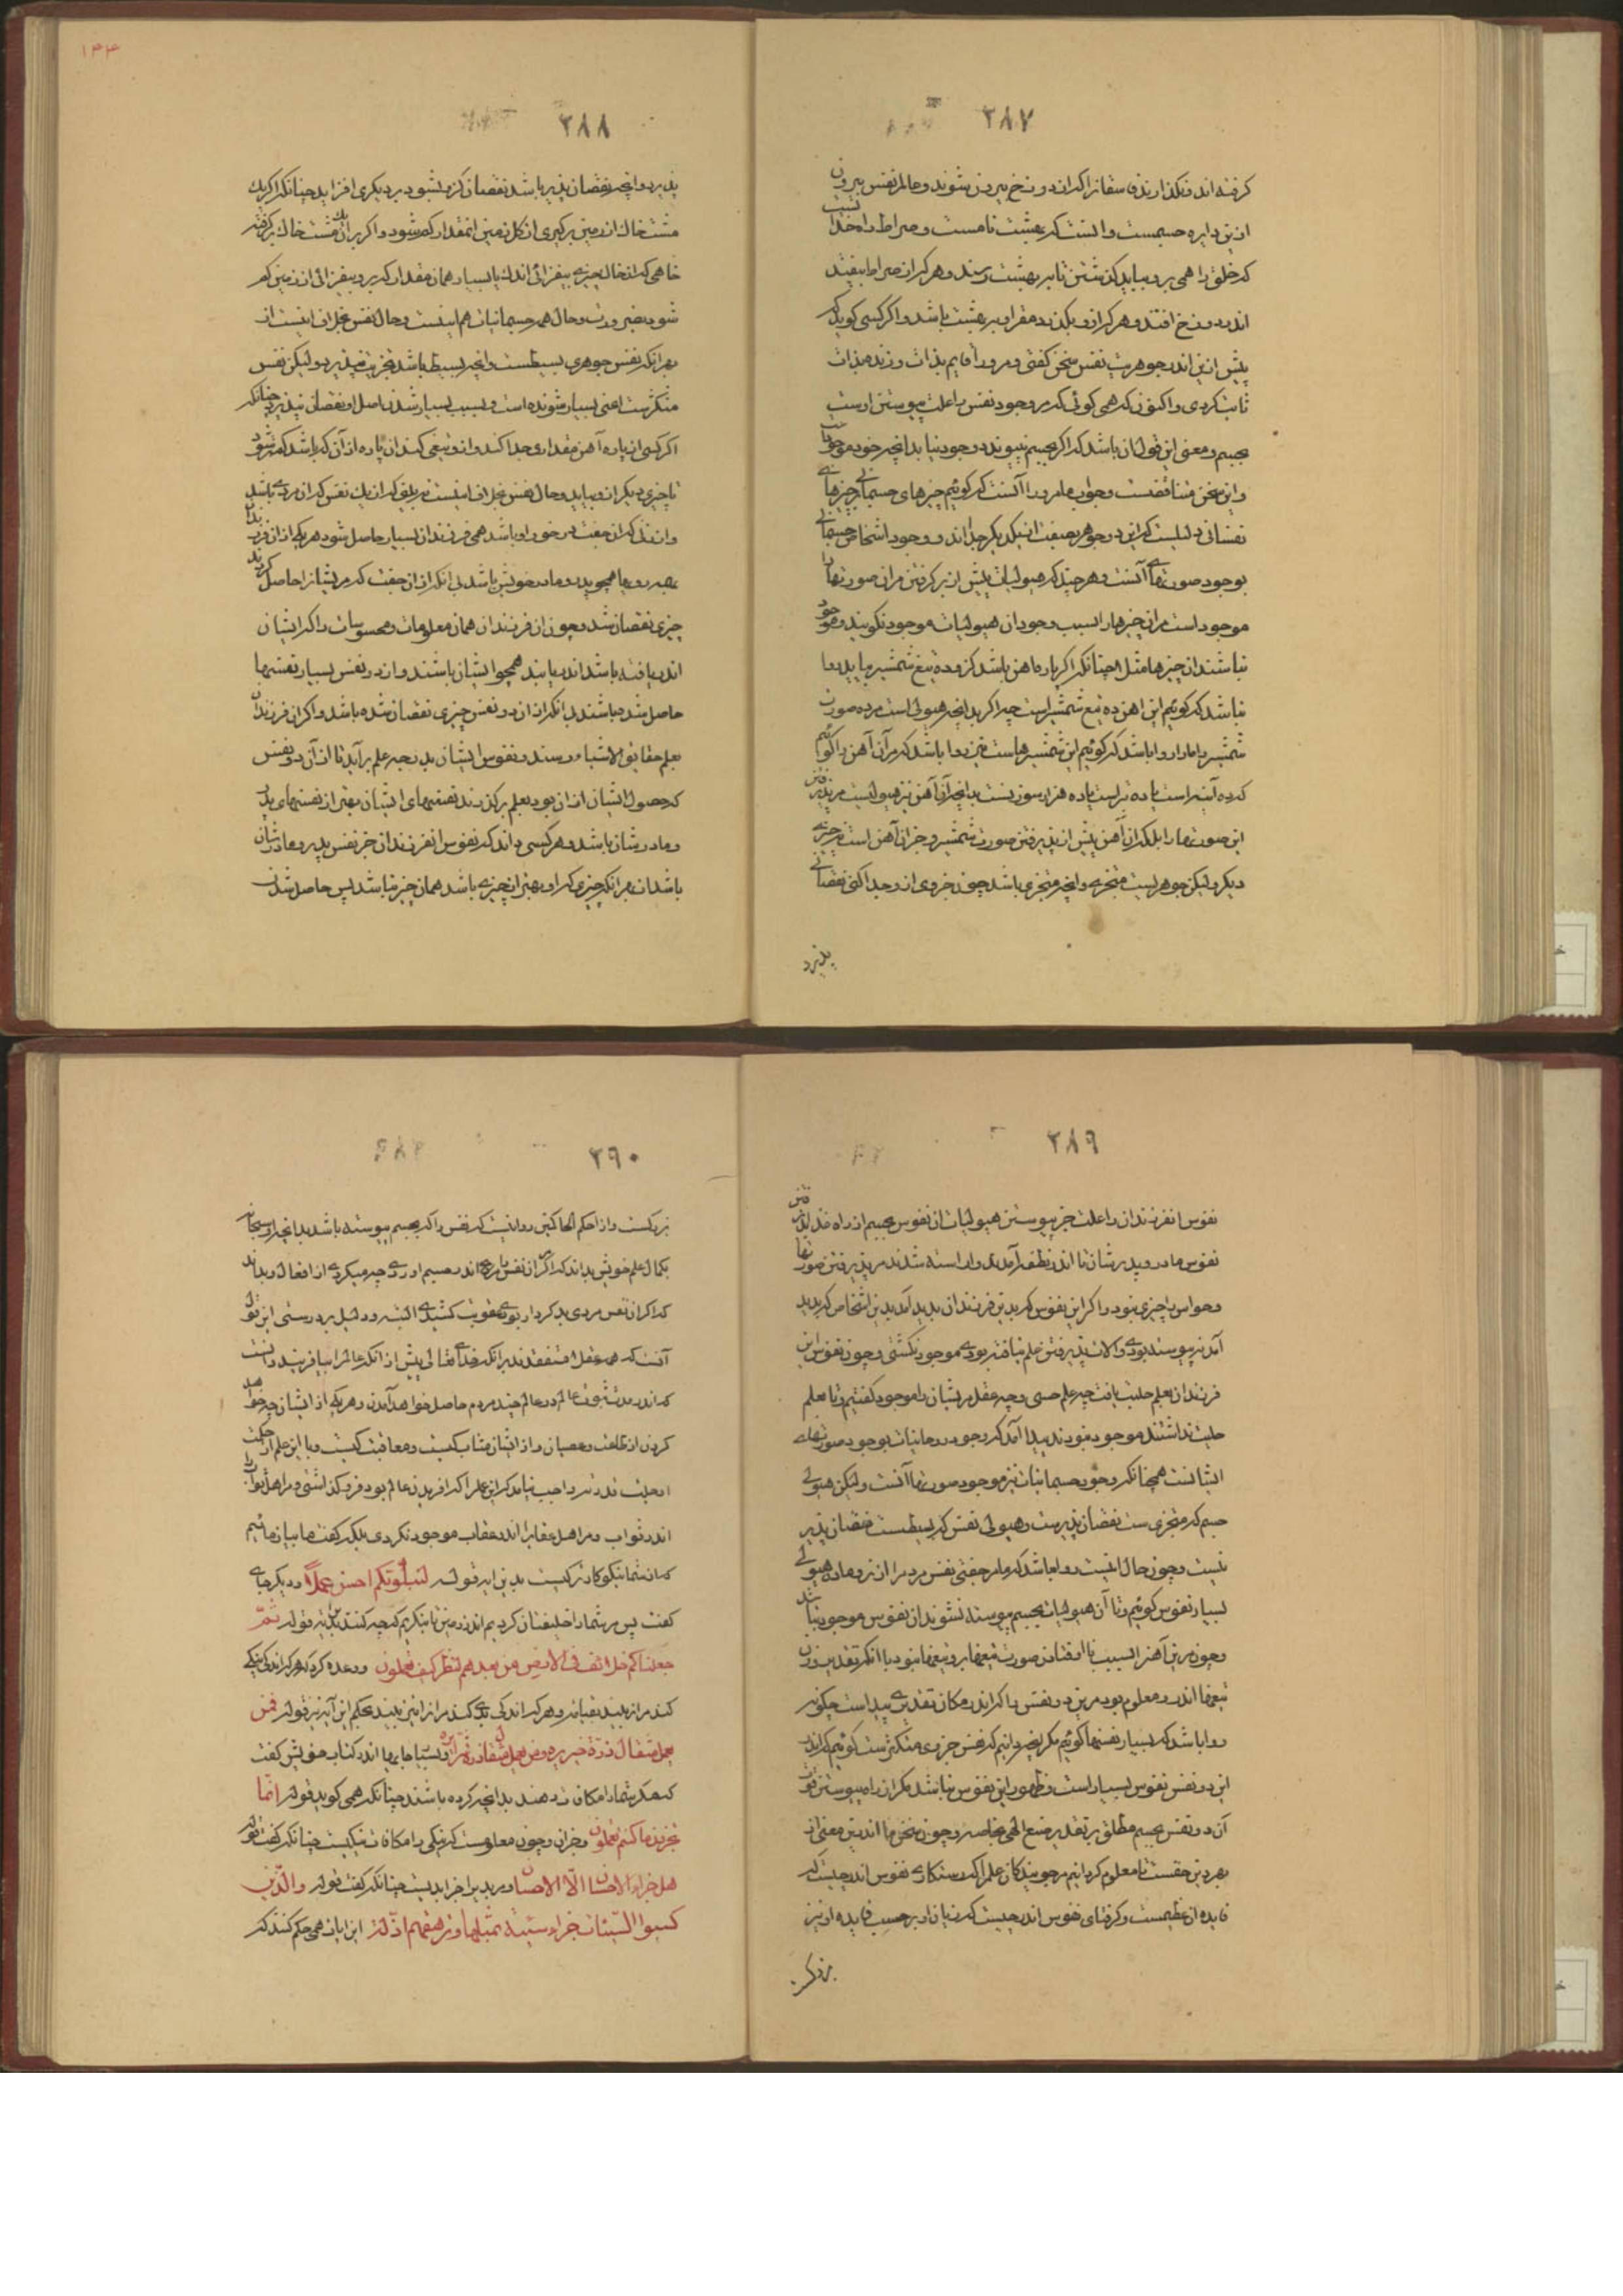 ٢٨٧
کرفته اند و نکذارندی سفانرا که از دوزخ بیرون شوند و عالم نفس بیرون
ازین دایره جسمست و انست که بهشت نامست و صراط راه خدا
که خلق را همی برو بباید کذشتن تا بر بهشت رسند و هر که از صراط بیفتد
اندر دوزخ افتد و هر که از و بکذرد مقر او بر بهشت باشد و اکر کسی کوید که
پیش ازین اندر جوهریت نفس سخن کفتی و مرورا قایم بذات و زنده بذات
ثابت کردی و اکنون که همی کوئی که مر وجود نفس را علت پیوستن اوست
بجسم و معنی این قول ان باشد که اکر بجسم نپیوندد وجود نیابد انچه خود موجود
و این سخن متناقضست و جواب ما مرورا آنست که کوئیم چیزهای جسمانی بر چیزهای
نفسانی دلیلست که این دو جوهر بصفت از یکدیکر جدااند و وجود اشخاص جسمانی
بوجود صورتهای آنست و هر چند که هیولیات پیش از بر کرفتن مر ان صورتها را
موجود است مر ان چیزها را بسبب وجود ان هیولیات موجود نکویند و موجود
نباشند ان چیزها مثلا چنانکه اکر پاره اهن باشد کزو ده تیغ شمشیر بیاید روا
نباشد که کوئیم این اهن ده تیغ شمشیر است چه اکر بدانچه هیولی است مر ده صورت
شمشیر را ما را روا باشد که کوئیم این شمشیرهاست نیز روا باشد که مر آن آهن را کوئیم
که ده آینه است یا ده تبر است یا ده هزار سوزنست بدانچه آن آهن نیز هیولیست مر پذیرفتن
این صورتها را بلکه ان آهن پیش از پذیرفتن صورت شمشیر و جز ان آهن است نه چیزی
دیکر ولیکن جوهریست متجزی و انچه متجزی باشد چون جزوی ازو جدا کنی نقصانی
پذیرد
١٤٤
٢٨٨
پذیرد و انچه نقصان پذیر باشد نقصان کزو بشود بر دیکری افزاید چنانکه اکر یک
مشت خاک از زمین بر کیری از کل زمین انمقدار کم شود و اکر بر ان یک مشت خاک بر کرفته
خاهی که از خاک چیزی بیفزائی اندک یا بسیار همان مقدار که برو بیفزائی از زمین کم
شود بضرورت و حال همه جسمانیات هم اینست و حال نفس بخلاف اینست از
بهر انکه نفس جوهری بسیطست و انچه بسیط باشد تجزیت نپذیرد ولیکن نفس
متکثر ست اعنی بسیار شونده است و بسبب بسیار شدن اصل او نقصان نپذیرد چنانکه
اکر کسی از پاره آهن مقداری جدا کند و ازو تیغی کند ان پاره از آن که باشد کمتر شود
تا چیزی دیکر ازو بیاید و حال نفس بخلاف اینست بدیلیق که از یک نفس که ان مردی باشد
و از زنی که ان جفت در خور او باشد همی فرزندان بسیار حاصل شود هر یکی از ان فرزندان
بصد روی ها همچو پدر و مادر خویش باشد بی انکه از ان جفت که مر ایشانرا حاصل کردند
چیزی نقصان شد و چون ان فرزندان همان معلومات و محسوسات را که ایشان
اندر یافته باشند اندر یابند همچو ایشان باشند و ازدو نفس بسیار نفسها
حاصل شده باشند بی انکه از ان دو نفس چیزی نقصان شده باشد و اکر ان فرزندان
بعلم حقایق الاشیاء رسند و نفوس ایشان بدرجه علم برآید تا از آن دو نفس
که حصول ایشان از ان بود بعلم بر کذرند نفسهای ایشان بهتر از نفسهای پدر
و مادرشان باشد و هر کسی داند که نفوس انفرزندان جز نفس پدر و مادرشان
باشد از بهر انکه چیزی که او بهتر از چیزی باشد همان چیز نباشد پس حاصل شدن
٢٨٩
نفوس انفرزندان را علت جز پیوستن هیولیات ان نفوس بجسم از راه غذا پذیرفتن
نفوس مادر و پدرشان تا اندر نطفه آمدند و اراسته شدند مر پذیرفتن صورتها
و حواس را چیزی نبود و اکر این نفوس که بدین فرزندان پدید آمد بدین اشخاص که پدید
آمد نپیوسته بودی و الات پذیرفتن علم نیافته بودی موجود نکشتی و چون نفوس این
فرزندان بعلم حلیت یافت چه علم حسی و چه عقل مر ایشان را موجود کفتیم و تا بعلم
حلیت نداشتند موجود نبودند پیدا آمد که وجود روحانیات بوجود صورتهای
ایشانست همچنانکه وجود جسمانیات نیز موجود صورتها آنست ولیکن هیولی
جسم که متجزی ست نقصان پذیرست و هیولی نفس که بسیطست نقصان پذیر
نیست و چون حال اینست روا باشد که ما مر جفتی نفس مردم را از نر و ماده هیولی
بسیار نفوس کوئیم و تا آن هیولیات بجسم پیوسته نشوند ان نفوس موجود نباشد
و چون مر ین آهن را بسبب نا افتادن صورت تیغها برو تیغها نبود با انکه تقدیر وزن
تیغها اندرو معلوم بود مر ین دو نفس را که اندر مکان تقدیری پیداست چکونه
روا باشد که بسیار نفسها کوئیم مکر بدانچه دانیم که نفس جزوی متکثرست کوئیم که اندر
این دو نفس نفوس بسیار است و ظهور این نفوس نباشد مکر از راه پیوستن نفوس
آن دو نفس بجسم مطلق بتقدیر صنع الهی بخاصه و چون سخن ما اندرین معنی از
بهر دین حقست تا معلوم کردانیم مر جویندکان علم را که رستکاری نفوس اندر چیست که
فایده از عظیمست و کرفتاری نفوس اندر چیست که زیان او بر حسب فایده او نیز
بزرک
٢٩٠
بزرکست و از احکم الحاکمین روا نیست که نفس را که بجسم پیوسته باشد بدانچه او سبحانه
بکمال علم خویش بداند که اکر ان نفس مردی اندر جسم اوردی چه میکردی از افعال بد بداند
که اکر ان نفس مردی بد کردار بودی عقوبت کشیدی البته و دلیل بر درستی این قول
آنست که همه عقلا متفقند بر انکه خدای تعالی پیش از انکه عالم را بیافریند دانست
که اندر مدت ثبوت عالم در عالم چند مردم حاصل خواهد آمدن و هر یکی از ایشان چه خواهد
کردن از طاعت و عصیان و از ایشان مثاب کیست و معاقب کیست و با این علم از حکمت
او حلیت قدرته واجب نیامد که این علم را که افریدن عالم بود فرو کذاشتی و مر اهل ثواب را
اندر ثواب و مر اهل عقاب را اندر عقاب موجود نکردی بلکه کفت ما بیازمائیم
که از شما نیکو کارتر کیست بدین ایه قوله لنبلوکم احسن عملا و دیکر جای
کفت پس مر شما را خلیفتان کردیم اندر زمین تا بنکریم که چه کنند بدین ایه قوله ثمّ
جعلناکم خلائف فی الارض من بعدهم لننظر کیف تعملون و وعده کرد که هر که اندکی نیکی
کند مر انرا بیند بقیامت و هر که اندکی بدی کند مر انرا نیز بیند بحکم این آیه نیز قوله فمن
یعمل مثقال ذرّة خیرا یره و من یعمل مثقال ذرة شرا یره و بسیار جایها اندر کتاب خویش کفت
که هر که شما را مکافات دهند بدانچه کرده باشند چنانکه همی کوید قوله انّما
تجزون ما کنتم تعملون و جز ان و چون معلومست که نیکی را مکافات نیکیست چنانکه کفت قوله
هل جزاء الاحسان الّا الاحسان و مر بدیرا جزا بدیست چنانکه کفت قوله والّذین
کسبوا السّیئات جزاء سیّئة بمثلها و ترهقهم ذلّة این ایات همی حکم کنند که